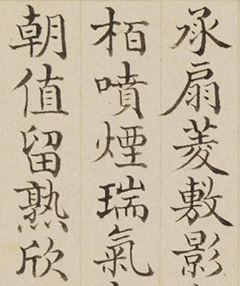 承扇菱敷影
栢噴煙瑞氣
朝值留熟欣